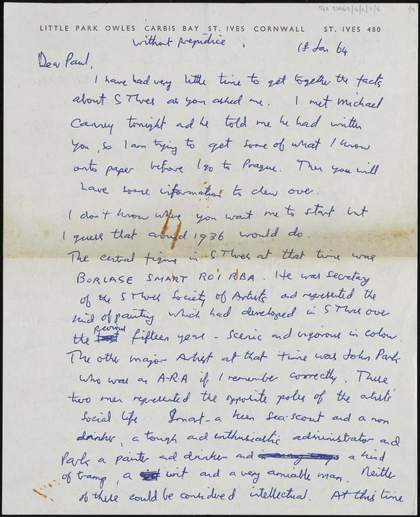 LITTLE PARK OWLES CARBIS BAY ST. IVES CORNWALL ST. IVES 480
without prejudice.
18 Jan 64
Dear Paul,
I have had very little time to get together the facts
about St Ives as you asked me. I met Michael
Canney tonight and he told me he had written
you, so I am trying to get some of what I know
onto paper before I go to Prague. Then you will
have some information to chew over.
I don't know where you want me to start but
I guess that around 1936 would do.
The central figure in St Ives at that time was
BORLASE SMART ROI RBA. He was secretary
of the St Ives Society of Artists and represented the
kind of painting which had developed in St Ives over
the previous fifteen years - scenic and vigorous in colour.
The other major artist at that time was John Park
who was an ARA if I remember correctly. These
two men represented the opposite poles of the artists'
social life. Smart - a keen sea-scout and a non
drinker, a tough and enthusiastic administrator and
Park a painter and drinker and a kind
of tramp, a wit and a very amiable man. Neither
of these could be considered intellectual. At this time